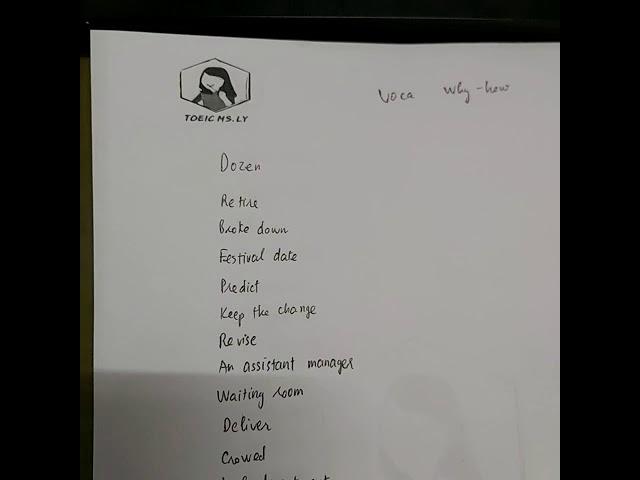 TOEIC MS.LY
Voca why - how
Dozen
Retire
Broke down
Festival date
Predict
Keep the change
Revise
An assistant manager
Waiting room
Deliver
Crowed